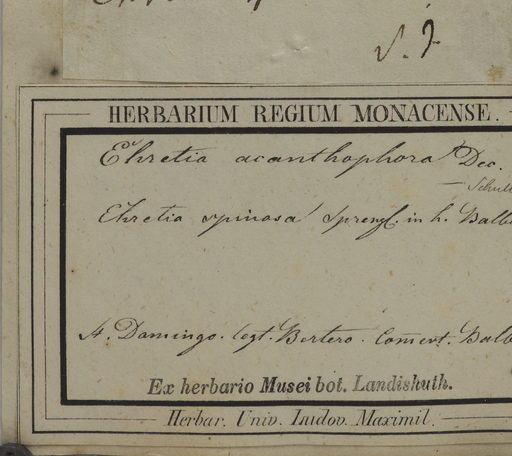 S. J.
HERBARIUM REGIUM MONACENSE.
Ehretia acanthophora Dec.
— Schult
Ehretia spinosa Sprengl. in h. Balb
St. Domingo. legt. Bertero. Comert. Balb
Ex herbario Musei bot. Landishuth.
Herbar. Univ. Ludov. Maximil.